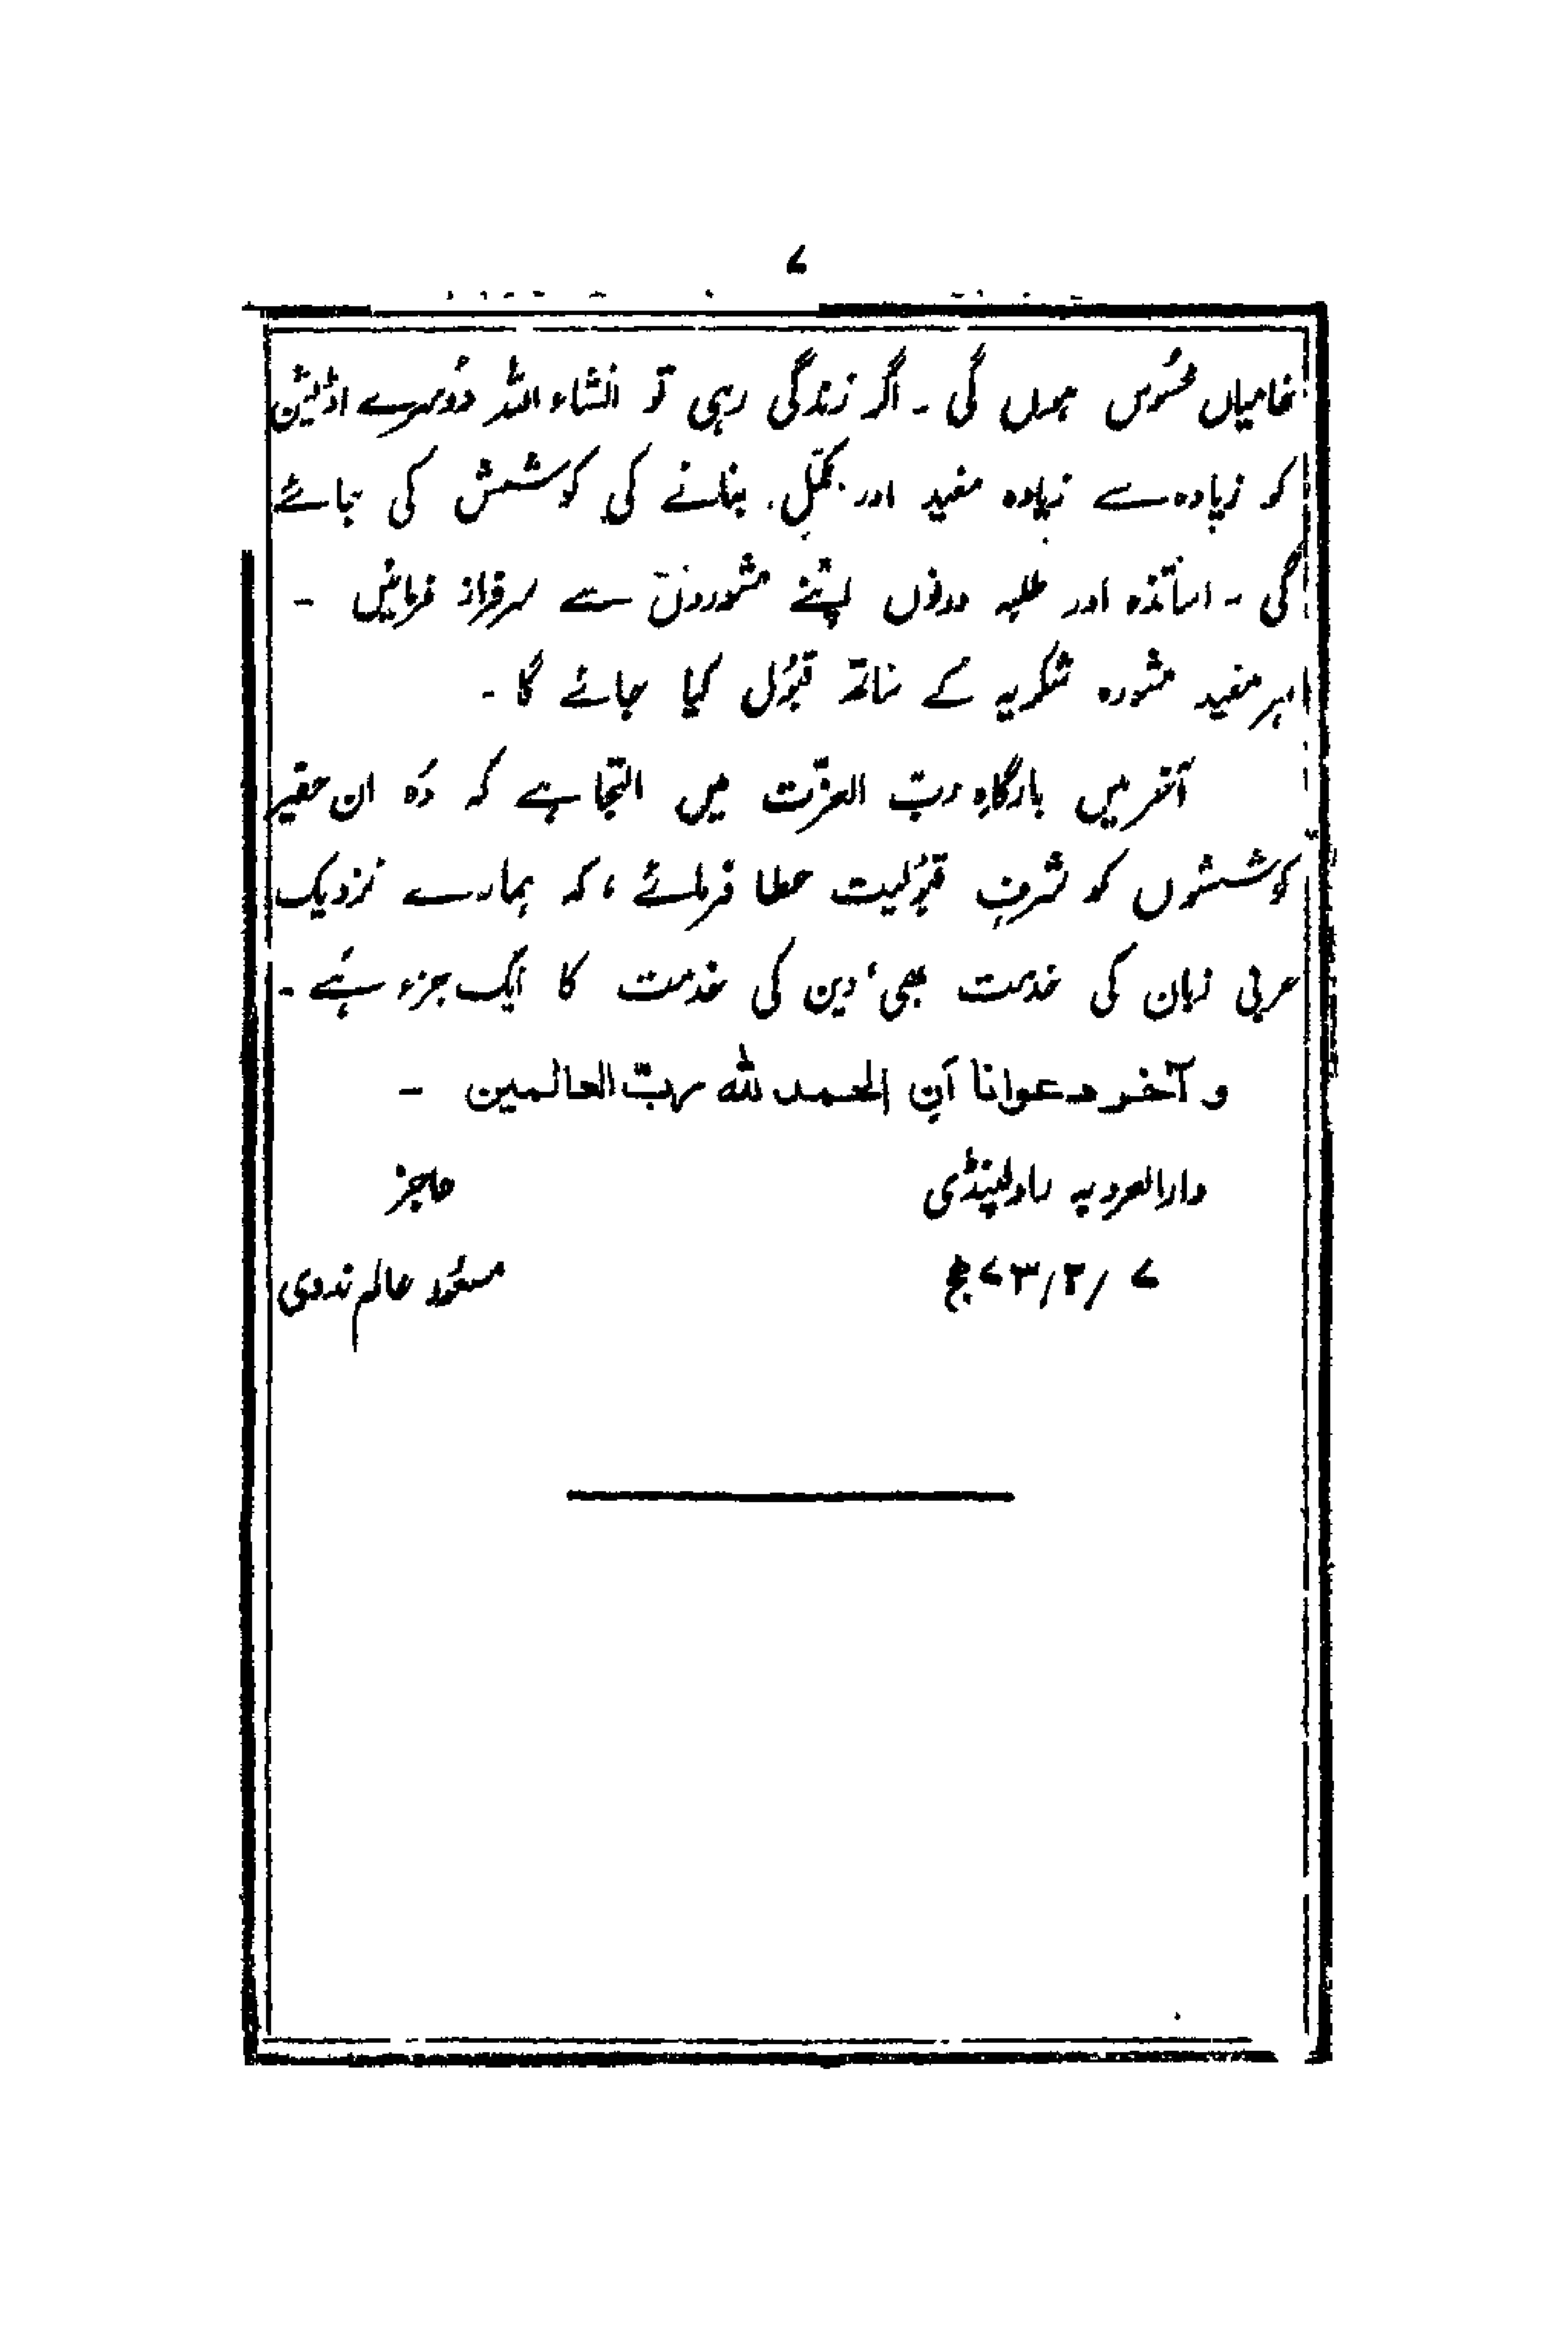 ۷
خامیاں محسُوس ہوں گی ۔ اگر زندگی رہی تو انشاء اللہ دُوسرے اڈیشن
کو زیادہ سے زیادہ مفید اور مکمّل بنانے کی کوشش کی جائے
گی ۔ اساتذہ اور طلبہ دونوں اپنے مشوروں سے سرفراز فرمائیں ۔
ہر مفید مشورہ شکریہ کے ساتھ قبُول کیا جائے گا ۔
آخر میں بارگاہِ ربّ العزّت میں التجا ہے کہ وُہ ان حقیر
کوششوں کو شرفِ قبُولیت عطا فرمائے ، کہ ہمارے نزدیک
عربی زبان کی خدمت بھی، دین کی خدمت کا ایک جزء ہے ۔
و آخر دعوانا أن الحمد لله ربّ العالمين ۔
دارالعروبہ راولپنڈی عاجز
۷ /۲/ ۷۳ھج مسعُود عالم ندوی